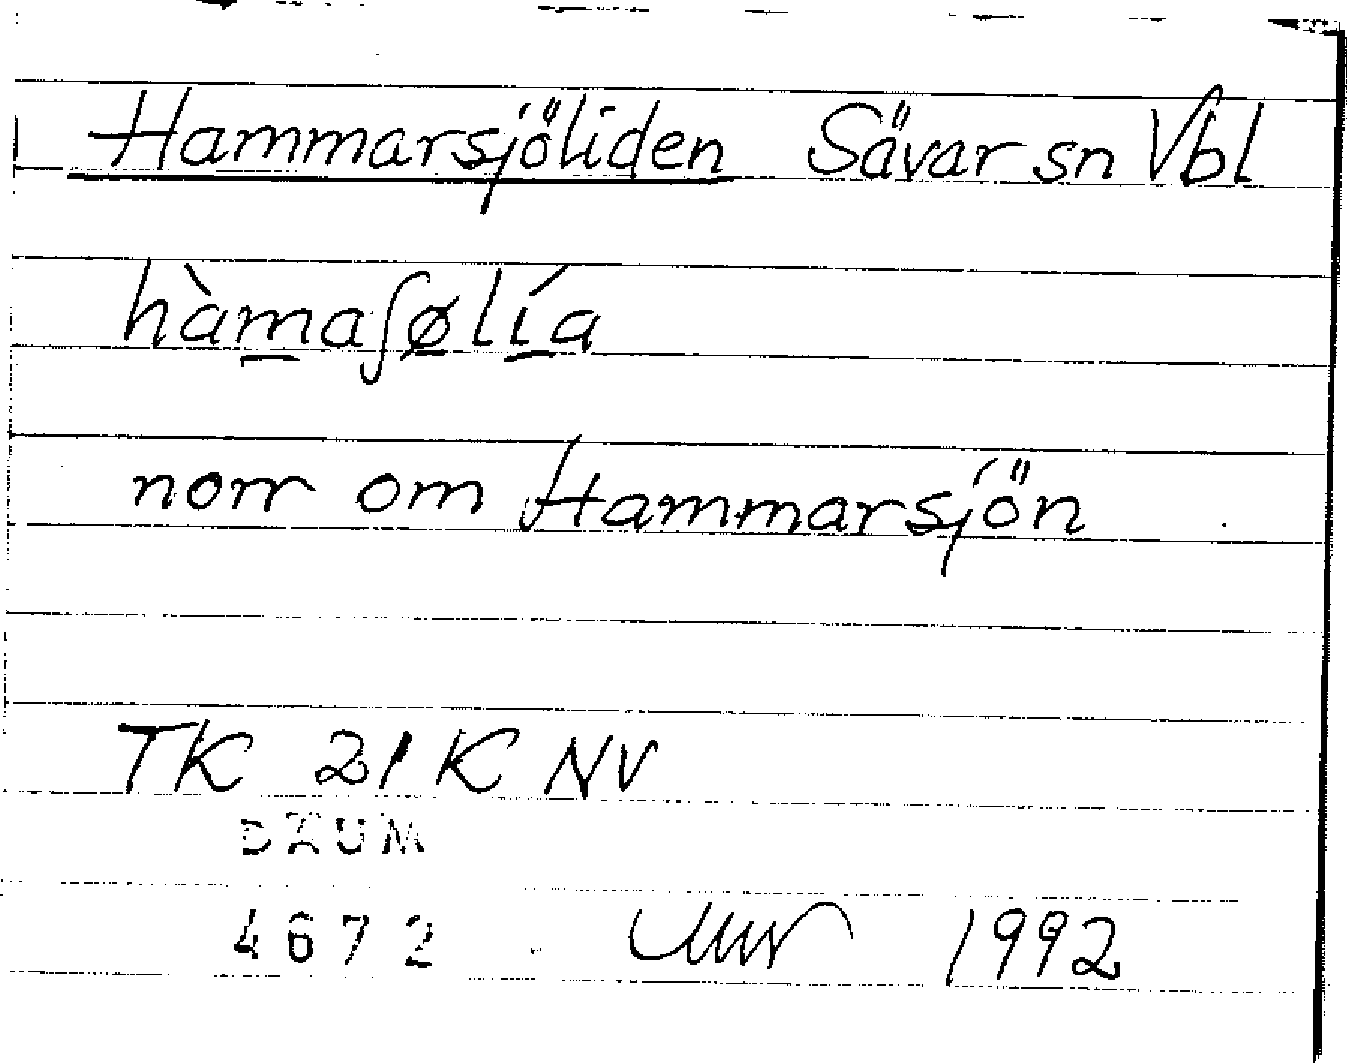 Hammarsjöliden Sävar sn Vbl
hàm̲aʃø̲lí̲a
norr om Hammarsjön
TK 21 K NV
DAUM
4672 1992